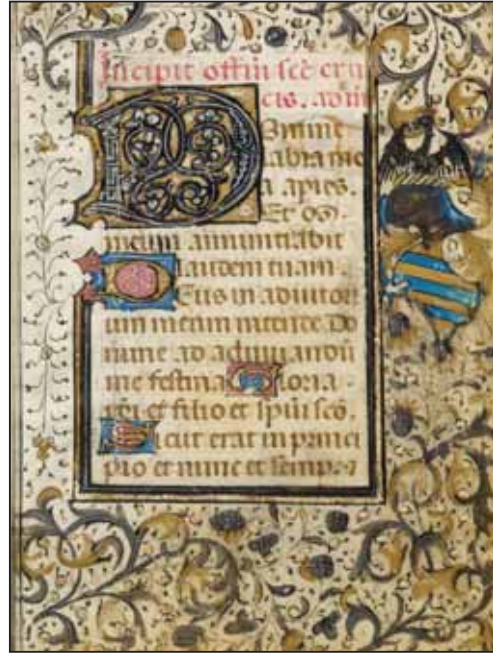 Incipit offiu scē cru
cis. ad m
Domine
labia me
a apies.
Et os
meum annuntiabit
laudem tuam.
Deus in adiutori
um meum intende Do
mine ad adiuuandū
me festina Gloria
et filio et spiui scō.
Sicut erat in princi
pio et nunc et semper